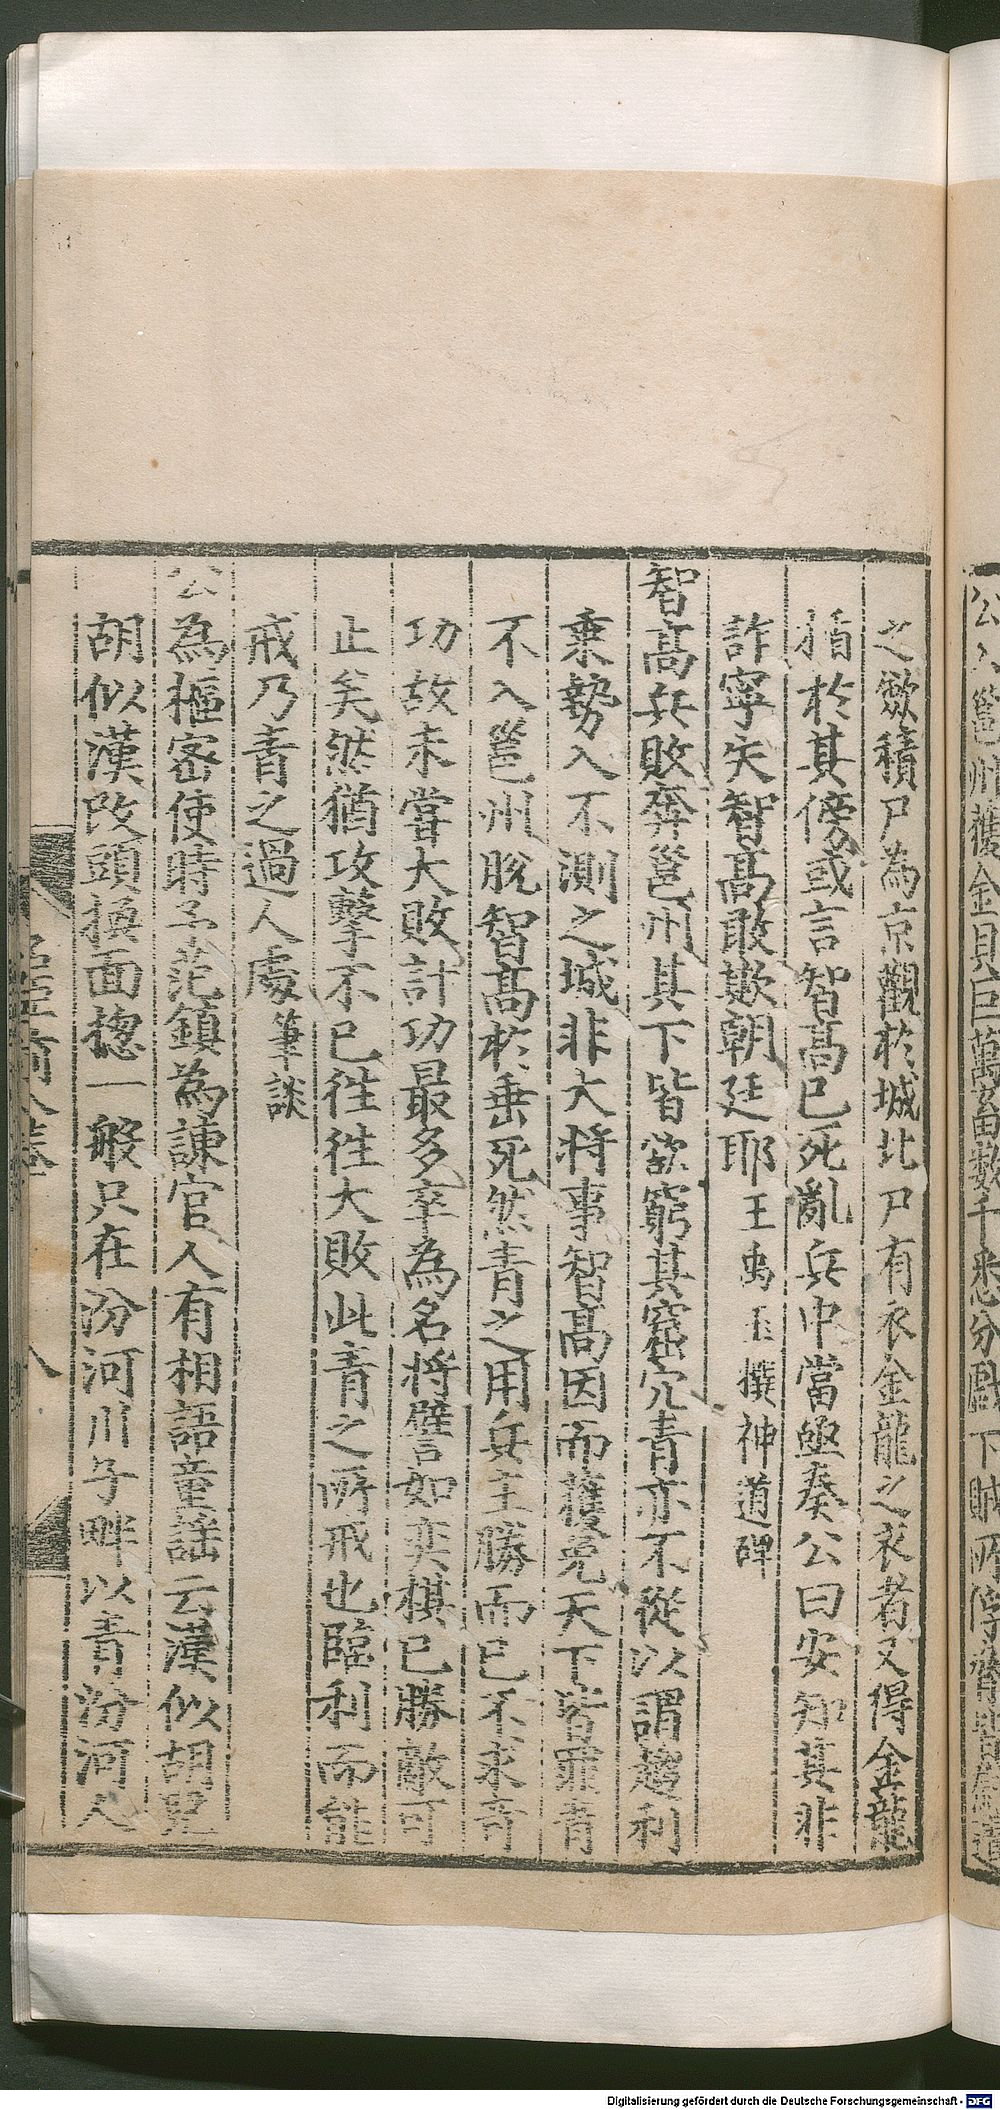 公入邕州獲金貝巨萬畜數千悉分戲下賊所俘脅
之斂積尸為京觀於城北尸有衣金龍之衣者又得金龍
楯於其傍或言智高已死亂兵中當亟奏公曰安知其非
詐寧失智高敢欺朝廷耶王禹玉撰神道碑
智高兵敗奔邕州其下皆欲窮其窟穴青亦不從以謂趨利
乘勢入不測之城非大將事智高因而獲免天下皆罪青
不入邕州脫智高於垂死然青之用兵主勝而已不求奇
功故未嘗大敗計功最多卒為名將譬如奕棋已勝敵可
止矣然猶攻擊不已往往大敗此青之所戒也臨利而能
戒乃青之過人處筆談
公為樞密使時予范鎮為諫官人有相語童謡云漢似胡兒
胡似漢改頭換面揔一般只在汾河川子畔以青汾河人
名臣前八卷
八
Digitalisierung gefördert durch die Deutsche Forschungsgemeinschaft - DFG